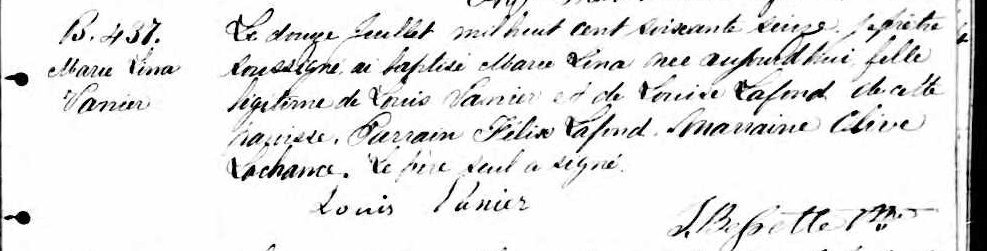 B. 437.
Marie Lina
Vanier
Le douze Juillet mil huit cent soixante seize, je prêtre
soussigné, ai baptisé Marie Lina née aujourd'hui, fille
légitime de Louis Vanier et de Louise Lafond de cette
paroisse. Parrain Félix Lafond. marraine Olive
Lachance. Le père seul a signé.
Louis Vanier